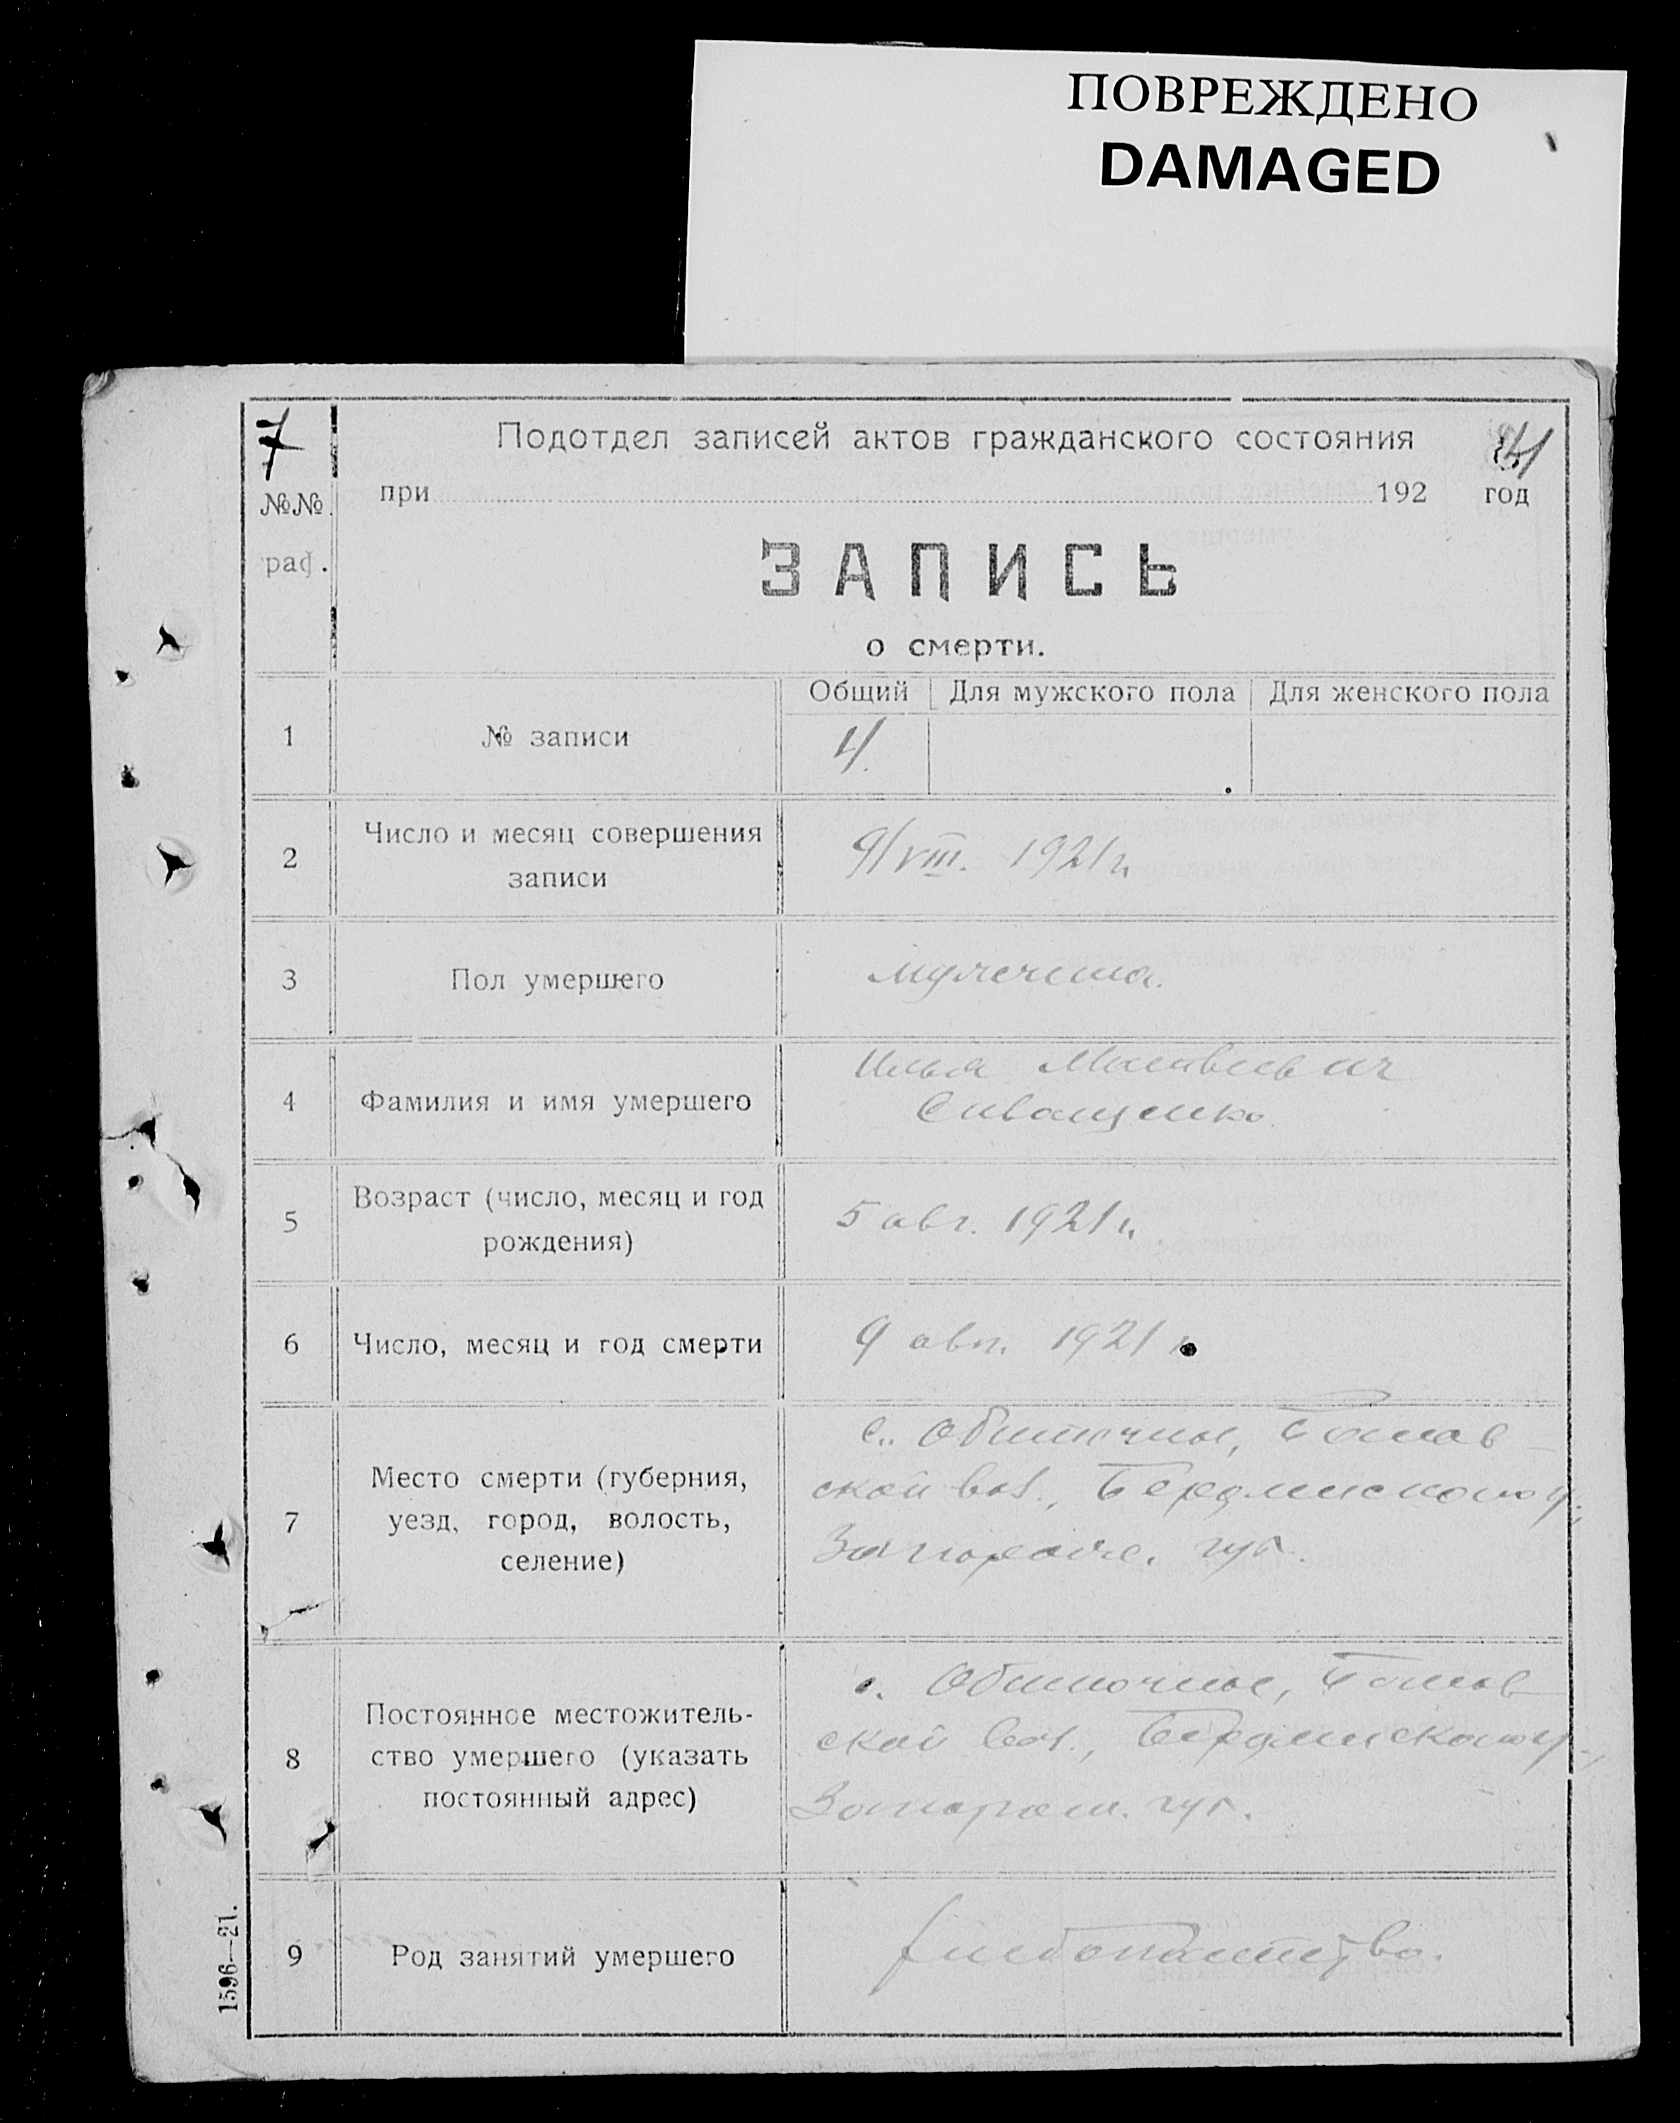 ПОВРЕЖДЕНО
DAMAGED
7
Подотдел записей актов гражданского состояния
№№
при 192 год
граф.
ЗАПИСЬ
о смерти.
Общий Для мужского пола Для женского пола
1 № записи 4.
2 Число и месяц совершения
записи 9/VIII. 1921 г.
3 Пол умершего мужчина.
4 Фамилия и имя умершего Илья Матвеевич
Сиващенко
5 Возраст (число, месяц и год
рождения) 5 авг. 1921 г.
6 Число, месяц и год смерти 9 авг. 1921 г.
с. Обиточное,
7 Место смерти (губерния,
уезд, город, волость,
селение)
ской вол., Бердянского у.,
губ.
с. Обиточное,
8 Постоянное местожитель-
ство умершего (указать
постоянный адрес)
ской вол., Бердянского у.,
губ.
9 Род занятий умершего хлебопашество.
1596—21.